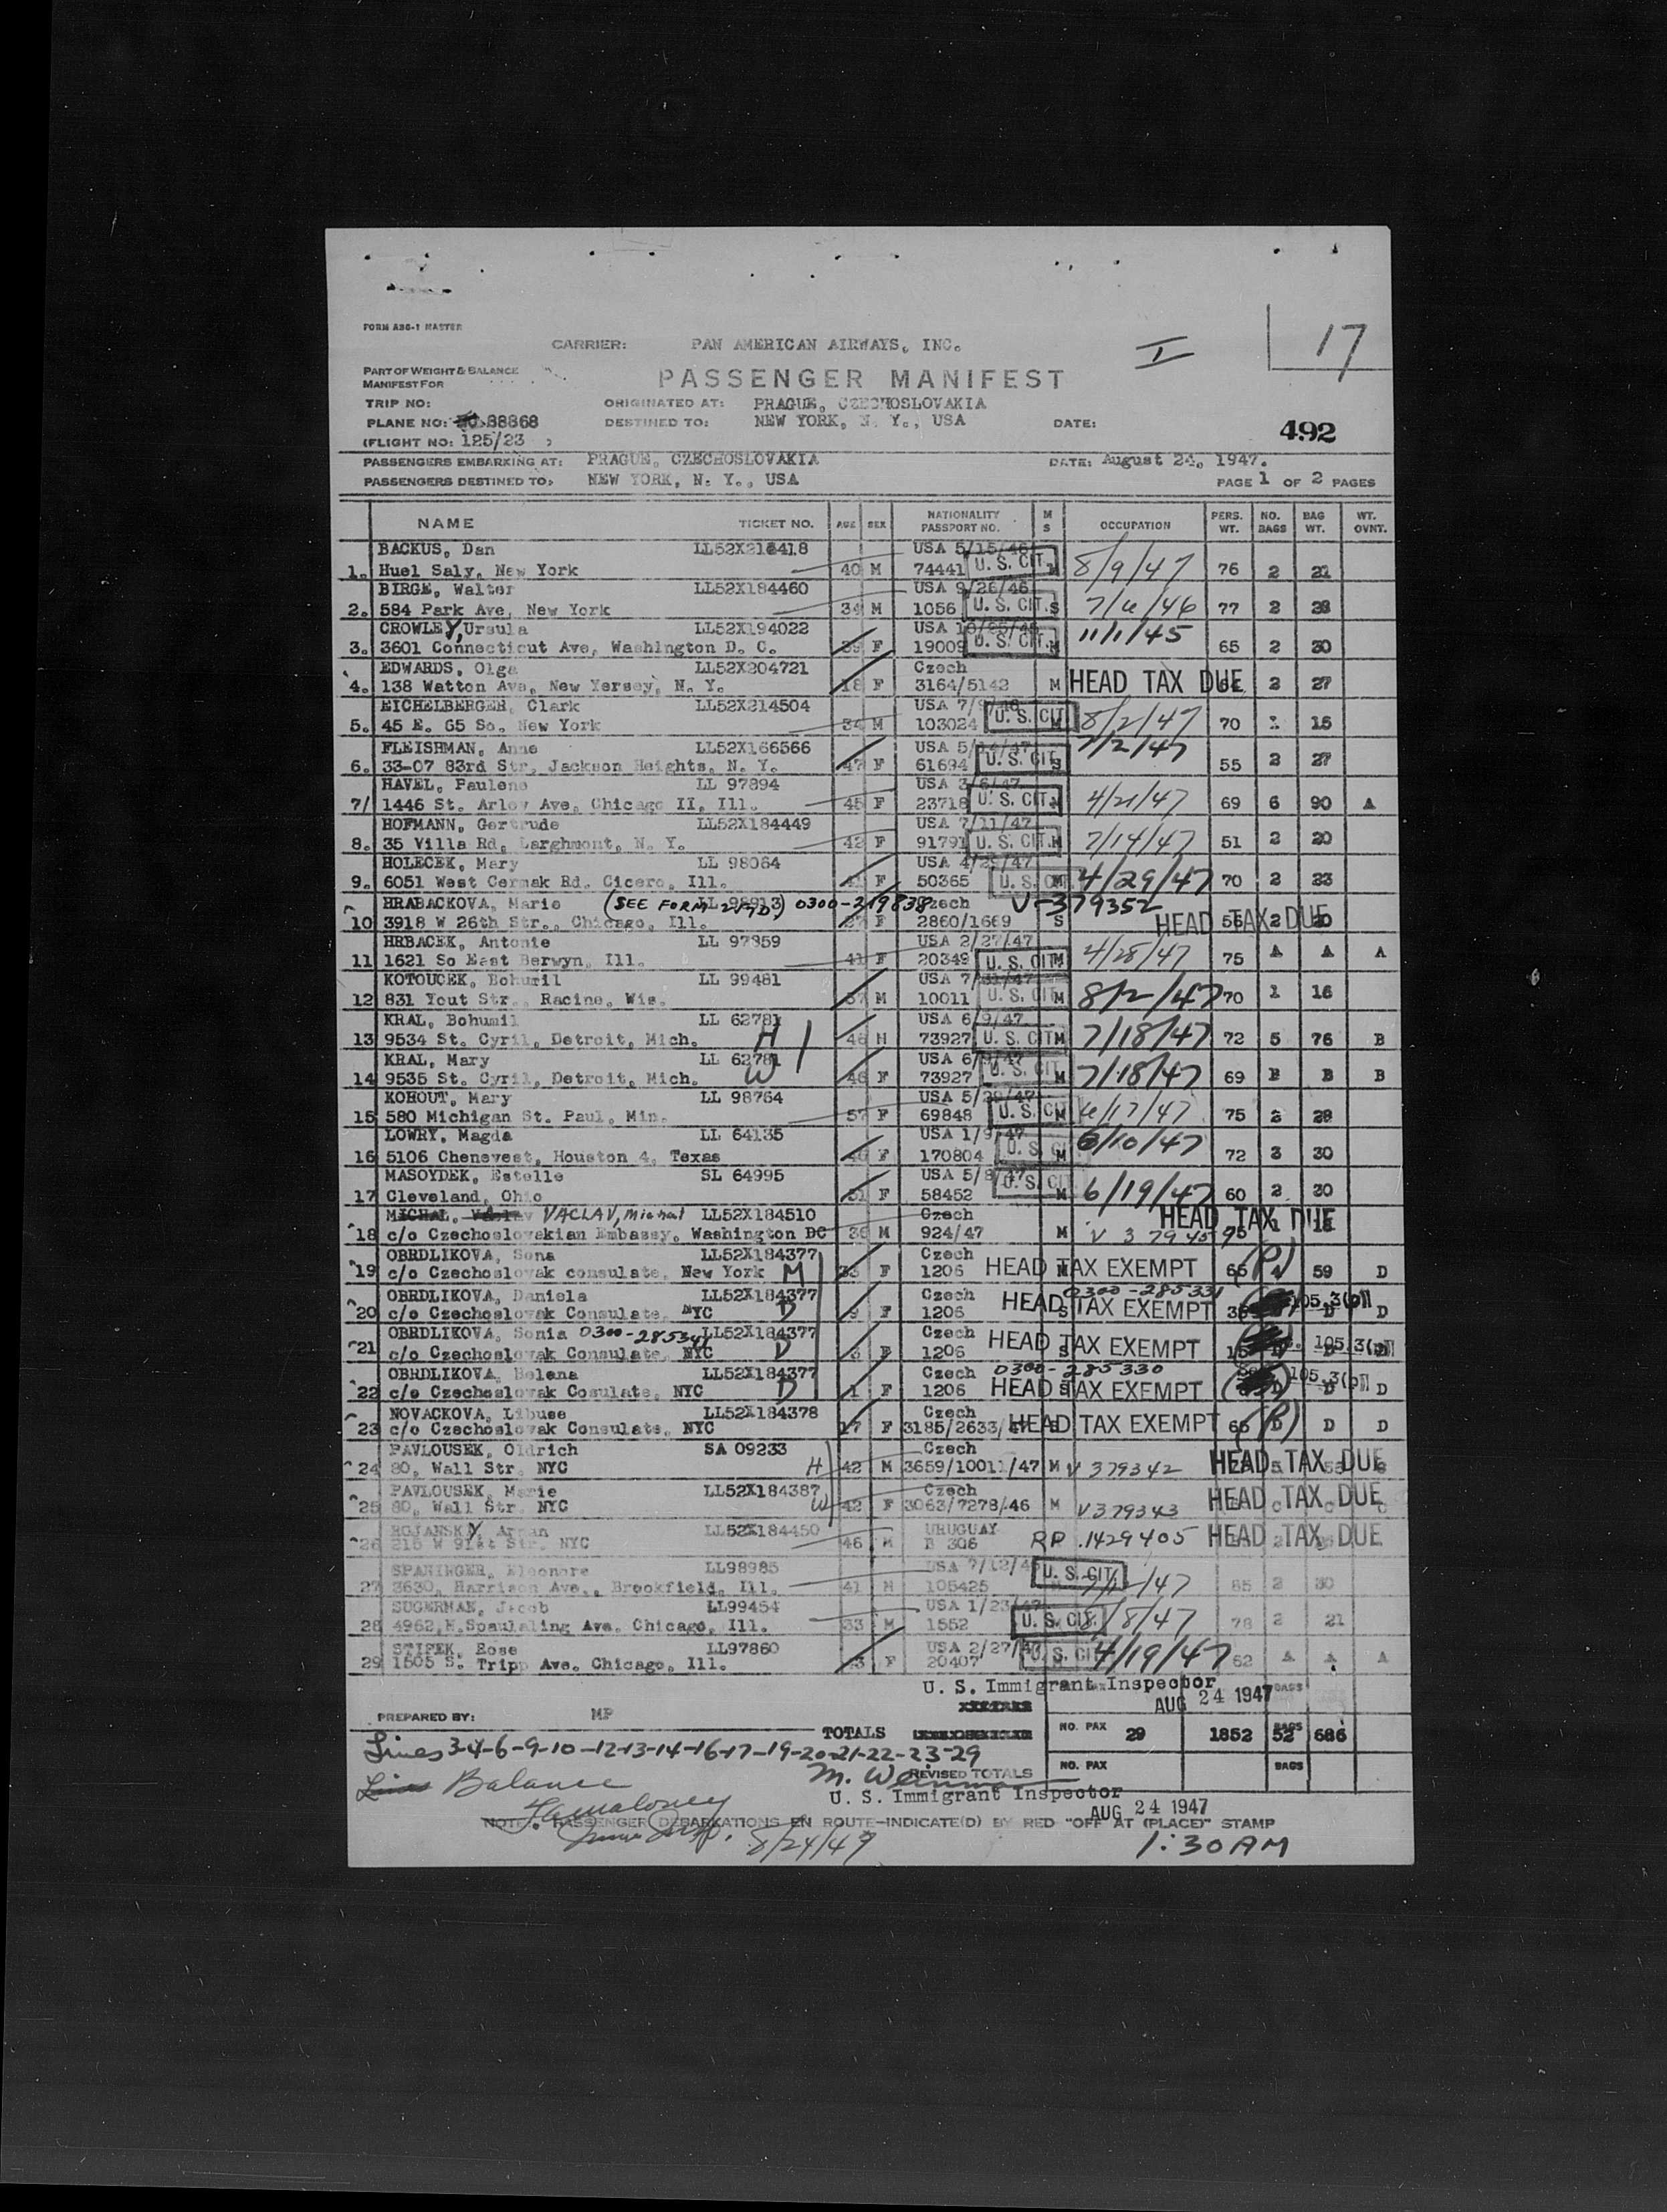 FORM ABG-1 MASTER
CARRIER: PAN AMERICAN AIRWAYS, INC.
I
17
PART OF WEIGHT & BALANCE
MANIFEST FOR
PASSENGER MANIFEST
TRIP NO: ORIGINATED AT: PRAGUE, CZECHOSLOVAKIA
PLANE NO: 88868 DESTINED TO: NEW YORK, N. Y., USA DATE: 492
(FLIGHT NO: 125/23 )
PASSENGERS EMBARKING AT: PRAGUE, CZECHOSLOVAKIA DATE: August 24, 1947.
PASSENGERS DESTINED TO, NEW YORK, N. Y., USA PAGE 1 OF 2 PAGES
NAME TICKET NO. AGE SEX NATIONALITY PASSPORT NO. M S OCCUPATION PERS. WT. NO. BAGS BAG WT. WT. OVNT.
BACKUS, Dan LL52X218418 USA 5/15/46
1. Huel Saly, New York 40 M 74441 U. S. CIT. 8/9/47 76 2 21
BIRGE, Walter LL52X184460 USA 9/26/46
2. 584 Park Ave, New York 34 M 1056 U. S. CIT. S 7/6/46 77 2 28
CROWLEY, Ursula LL52X194022 USA
3. 3601 Connecticut Ave, Washington D. C. 39 F 19009 U. S. CIT. M 11/1/45 65 2 30
EDWARDS, Olga LL52X204721 Czech
4. 138 Watton Ave, New Yersey, N. Y. 18 F 3164/5142 M HEAD TAX DUE 2 27
EICHELBERGER, Clark LL52X214504 USA
5. 45 E. 65 So. New York 34 M 103024 U. S. CIT 8/2/47 70 1 16
FLEISHMAN, Anne LL52X166566 USA
6. 33-07 83rd Str, Jackson Heights, N. Y. 47 F 61694 U. S. CIT S 7/2/47 55 2 27
HAVEL, Paulene LL 97894 USA 3/6/47
7/ 1446 St. Arloy Ave, Chicago II, Ill. 45 F 23718 U. S. CIT. M 4/21/47 69 6 90 A
HOFMANN, Gertrude LL52X184449 USA 7/11/47
8. 35 Villa Rd, Larghmont, N. Y. 42 F 91791 U. S. CIT. M 7/14/47 51 2 20
HOLECEK, Mary LL 98064 USA 4/29/47
9. 6051 West Cermak Rd. Cicero, Ill. 41 F 50365 U. S. CIT 4/29/47 70 2 23
HRABACKOVA, Marie (SEE FORM 257D) LL 98913 0300-219838 Czech V-379352
10 3918 W 26th Str., Chicago, Ill. 27 F 2860/1669 S HEAD TAX DUE 56 2 20
HRBACEK, Antonie LL 97859 USA 2/27/47
11 1621 So East Berwyn, Ill. 41 F 20349 U. S. CIT M 4/28/47 75 A A A
KOTOUCEK, Bohumil LL 99481 USA
12 831 Yout Str., Racine, Wis. 57 M 10011 U. S. CIT M 8/2/47 70 1 16
KRAL, Bohumil LL 62781 USA 6/9/47
13 9534 St. Cyril, Detroit, Mich. H 48 M 73927 U. S. CIT M 7/18/47 72 5 76 B
KRAL, Mary LL 62781 USA 6/9/47
14 9535 St. Cyril, Detroit, Mich. W 46 F 73927 U. S. CIT M 7/18/47 69 B B B
KOHOUT, Mary LL 98764 USA
15 580 Michigan St. Paul, Min. 57 F 69848 U. S. CIT M 6/17/47 75 2 28
LOWRY, Magda LL 64135 USA 1/9/47
16 5106 Chenevest, Houston 4, Texas 40 F 170804 U. S. CIT M 6/10/47 72 3 30
MASOYDEK, Estelle SL 64995 USA 5/8/47
17 Cleveland, Ohio 51 F 58452 U. S. CIT M 6/19/47 60 2 30
MICHAL, Vaclav VACLAV, Michal LL52X184510 Czech HEAD TAX DUE
18 c/o Czechoslovakian Embassy, Washington DC 36 M 924/47 M
OBRDLIKOVA, Sona LL52X184377 Czech
19 c/o Czechoslovak consulate, New York M 33 F 1206 HEAD TAX EXEMPT 65 (P) 59 D
OBRDLIKOVA, Daniela LL52X184377 Czech 0300-285331
20 c/o Czechoslovak Consulate, NYC D 9 F 1206 HEAD TAX EXEMPT 105.3(p) D D
OBRDLIKOVA, Sonia 0300-285341 LL52X184377 Czech
21 c/o Czechoslovak Consulate, NYC D F 1206 HEAD TAX EXEMPT 15 105.3(p)
OBRDLIKOVA, Helena LL52X184377 Czech 0300-285330
22 c/o Czechoslovak Cosulate, NYC D 1 F 1206 HEAD TAX EXEMPT 105.3(p) D D
NOVACKOVA, Libuse LL52X184378 Czech
23 c/o Czechoslovak Consulate, NYC 17 F 3185/2633/47 HEAD TAX EXEMPT 65 (P) D D
PAVLOUSEK, Oldrich SA 09233 Czech
24 80, Wall Str. NYC H 42 M 3659/10011/47 M V 379342 HEAD TAX DUE
PAVLOUSEK, Marie LL52X184387 Czech
25 80, Wall Str. NYC W 42 F 3063/7278/46 M V379343 HEAD TAX DUE
ROJANSKY, LL52X184450 URUGUAY
26 215 W 91st Str. NYC 46 M B 306 RP.1429405 HEAD TAX DUE
SPANINGER, Eleonore LL98985 USA
27 3630, Harrison Ave., Brookfield, Ill. 41 M 105425 U. S. CIT 65 2 30
SUGERMAN, Jacob LL99454 USA 1/23/47
28 4962, N. Spaulaling Ave. Chicago, Ill. 33 M 1552 U. S. CIT. 8/8/47 78 2 21
STIFEK, Rose LL97860 USA 2/27/47
29 1505 S. Tripp Ave. Chicago, Ill. F 20407 U. S. CIT 4/19/47 62 A A A
U. S. Immigrant Inspector
AUG 24 1947
PREPARED BY: MP
TOTALS NO. PAX 29 1852 BAGS 52 686
Lines 3-4-6-9-10-12-13-14-16-17-19-20-21-22-23-29
REVISED TOTALS NO. PAX BAGS
Lines Balance M. Weinman
U. S. Immigrant Inspector
AUG 24 1947
NOTE: PASSENGER DEBARKATIONS EN ROUTE-INDICATE(D) BY RED "OFF AT (PLACE)" STAMP
8/24/47 1:30 AM